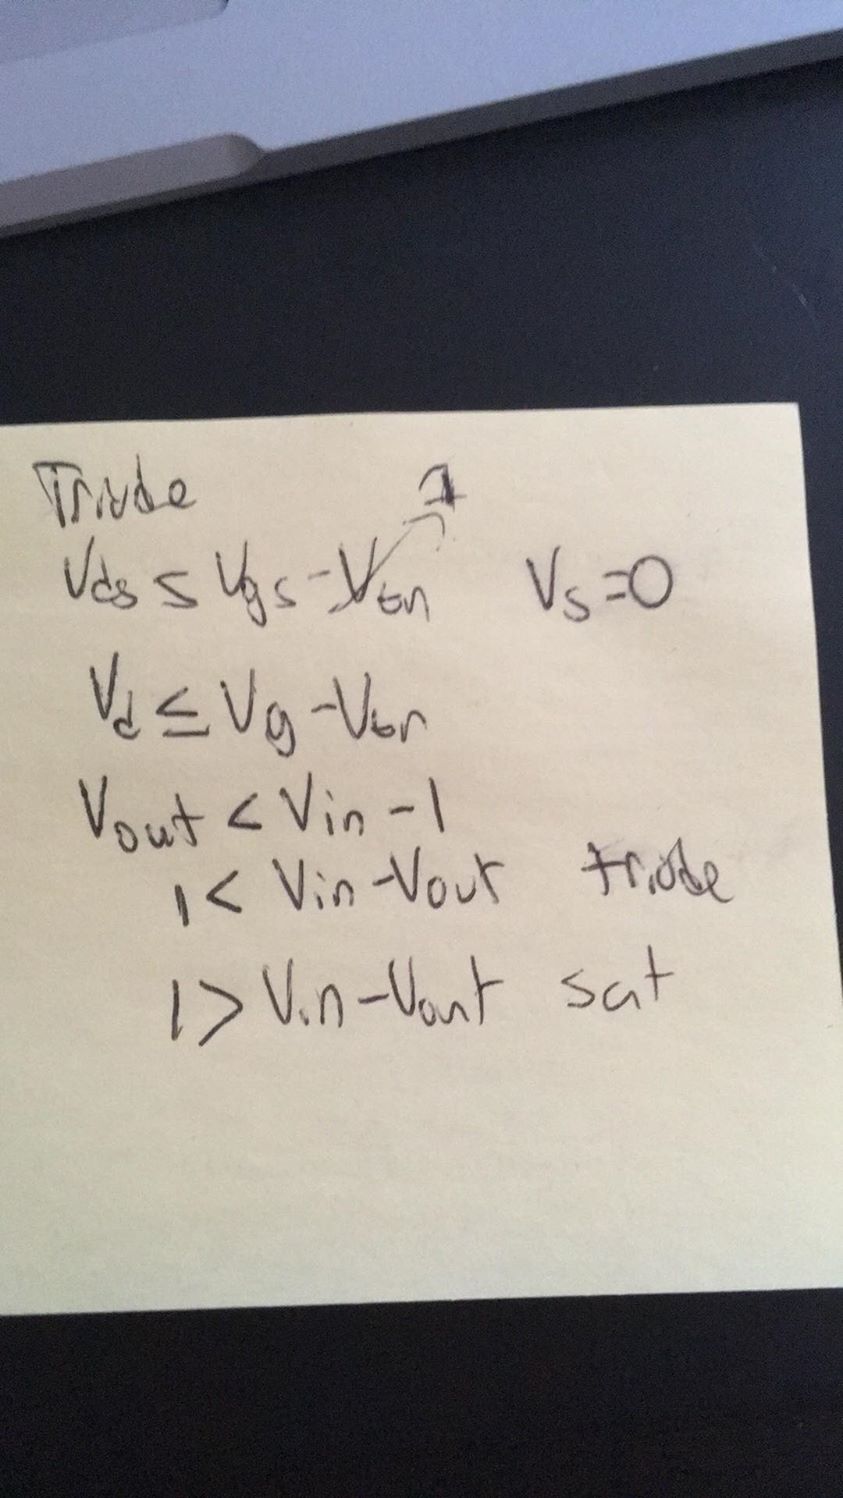 Triode
1
Vds ≤ Vgs - Vtn Vs=0
Vd ≤ Vg - Vtn
Vout < Vin - 1
1 < Vin - Vout triode
1 > Vin - Vout sat